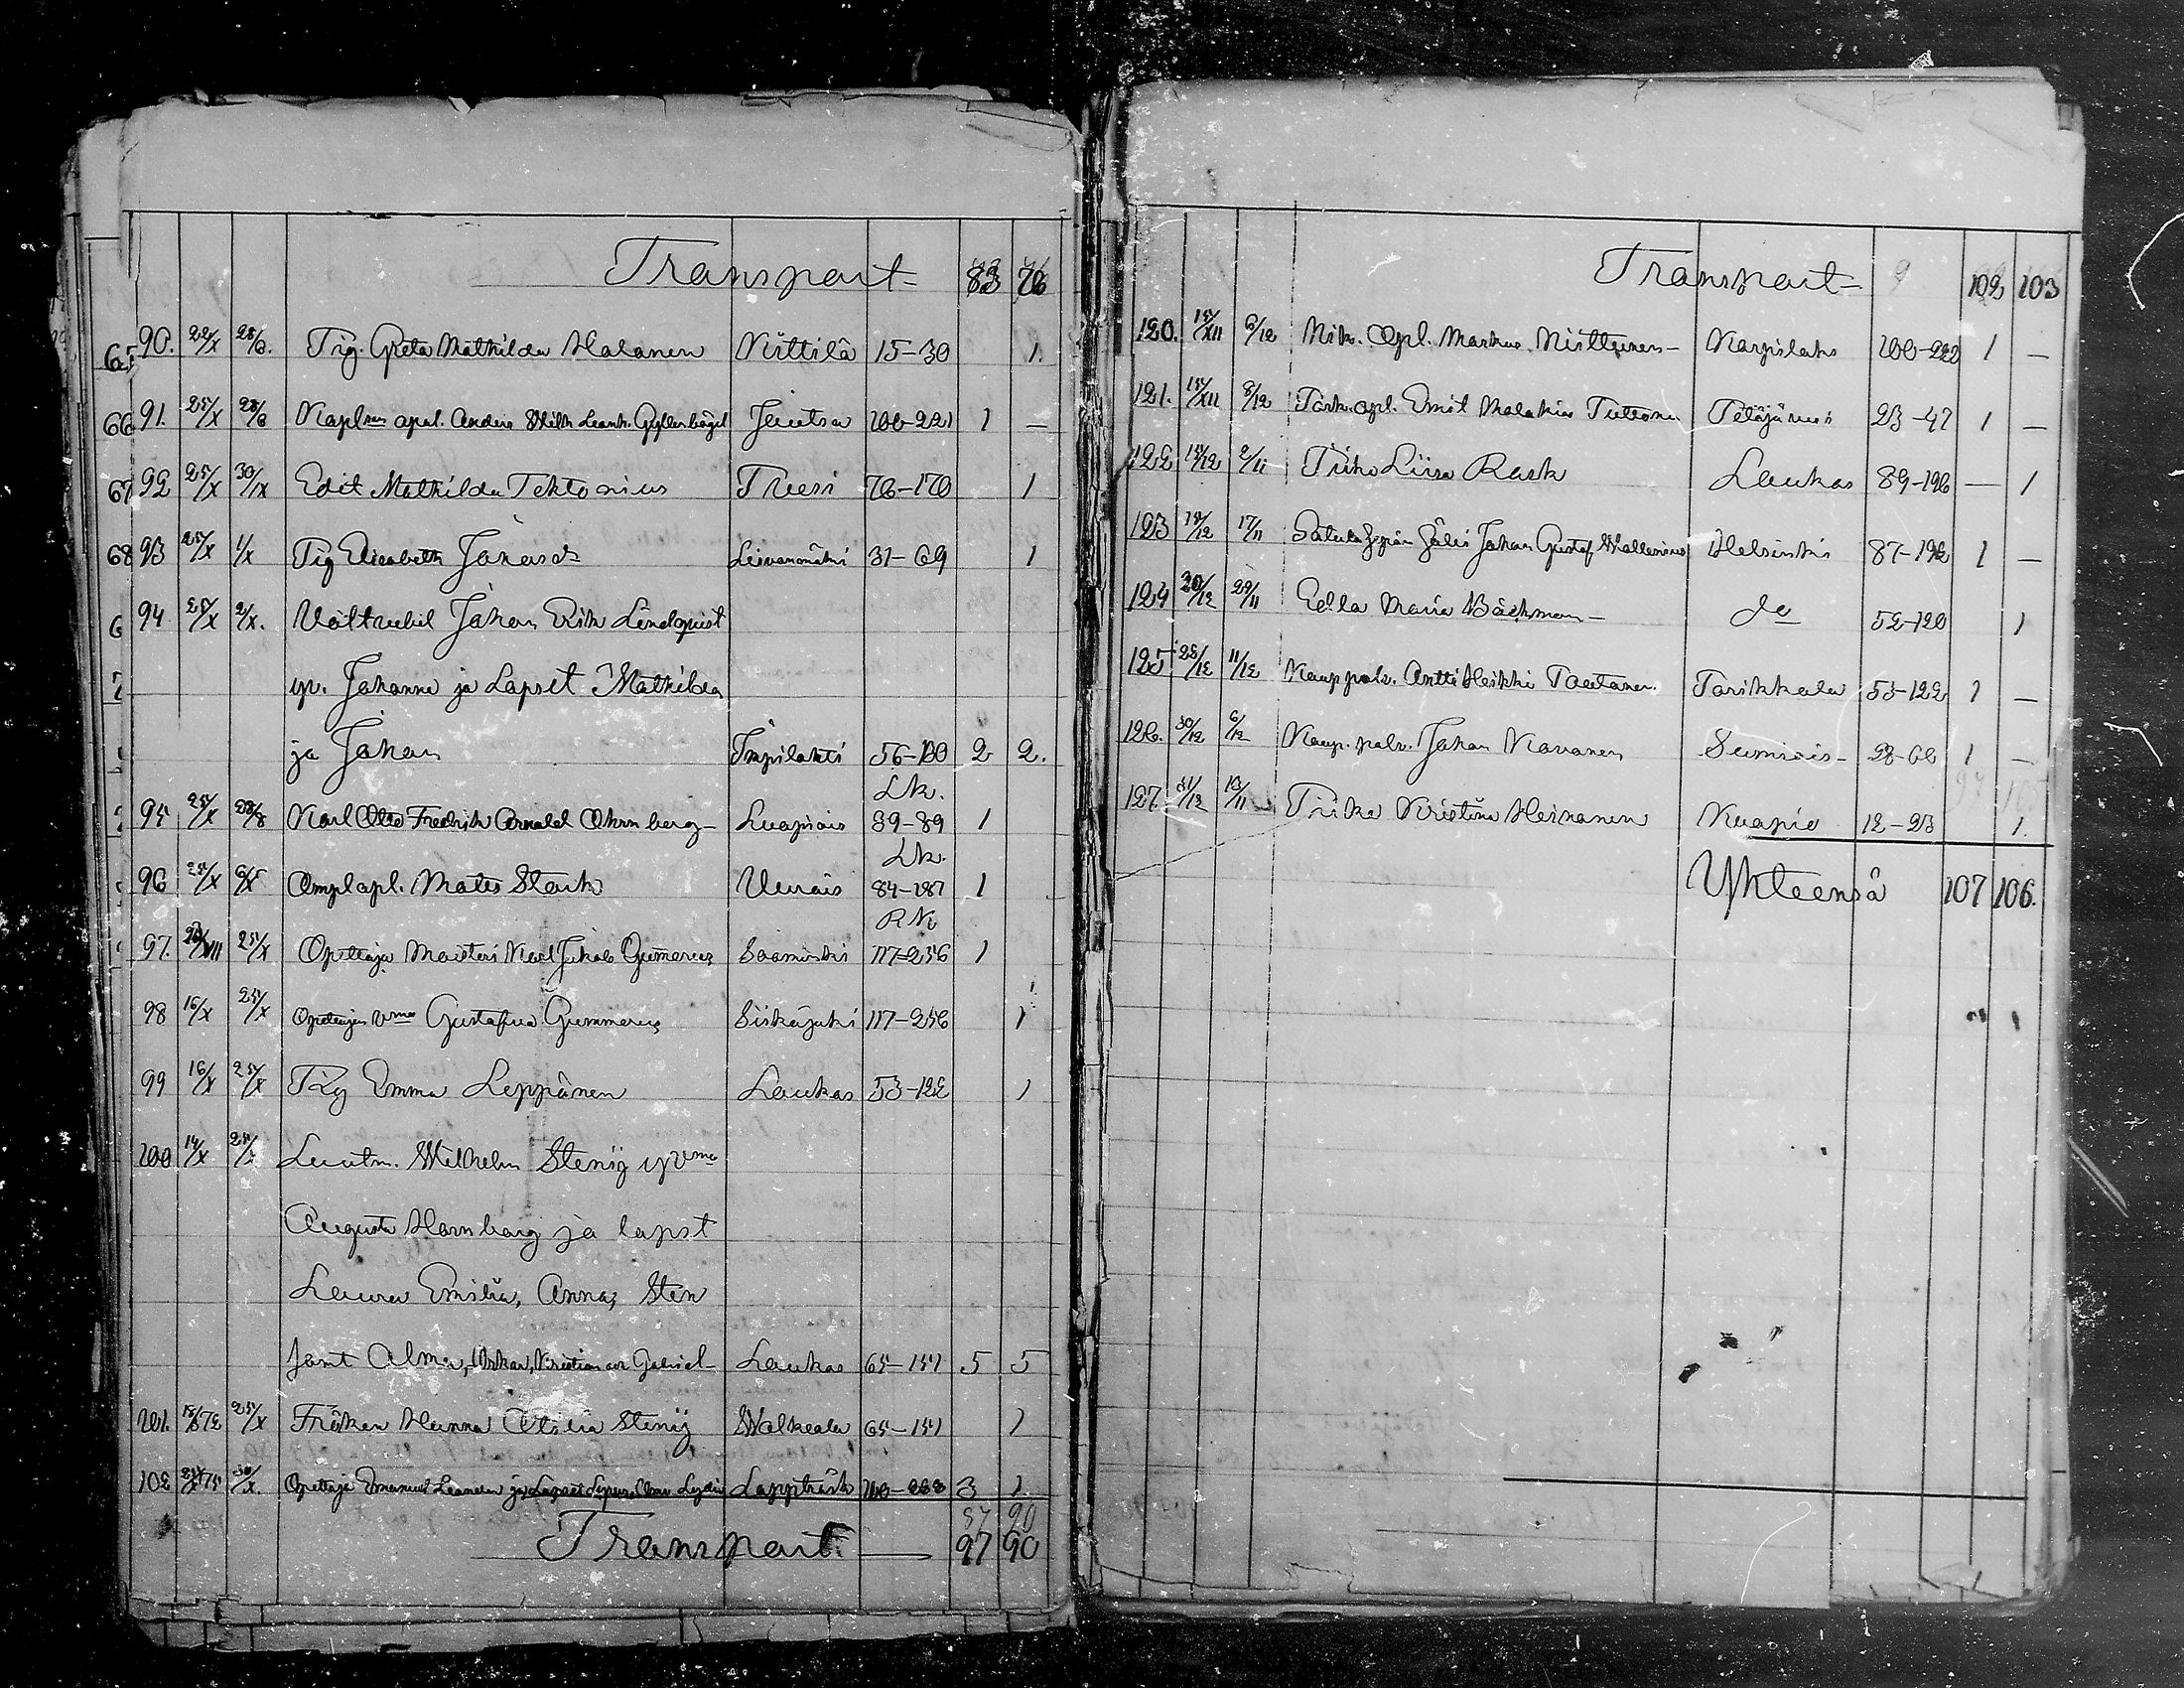 Transport 83 76
65 90. 22/X 28/8. Pig. Greta Mathilda Halanen Kittilä 15-30 1.
66 91. 25/X 28/8 Kaplm apul. Anders Wilh. Leonh. Gyllenbögel Joutsa 100-221 1 —
67 92 25/X 30/IX Edit Mathilda Tektonius Preesi 76-170 1
68 93 25/X 1/X Pig Elisabeth Johasd Leivonmäki 31-69 1
94 25/X 2/X. Vält Johan Erik Lindqvist
v. Johanna ja Lapset Mathilda
ja Johan Impilahti 56-130 2 2.
Lk.
95 25/X 28/8 Karl Otto Fredrik Arnold Öhrnberg Luopiois 39-89 1
Lk.
96 25/X 6/X apl. Mats Stark Uurais 84-187 1
RK
97. 25/X Opettaja Maisteri Karl Jakob Gumerus Sääminki 117-256 1
98 16/X 25/X Opettajan vma Gustafva Gummerus Siikajoki 117-256 1
99 16/X 25/X Pig Emma Leppänen Laukas 53-122 1
100 14/X 25/X Luutn. Wilhelm Stenij v vma
Augusta Hornborg ja lapst
Laura Emilia, Anna, Sten
samt Alma, Oskar, Kristian och Gabriel Laukas 65-151 5 5
101. 25/X Fröken Hanna Otilia Stenij Walkeala 65-151 1
102 Opettaja Emanuel Leander ja Lapset Lydia Lappträsk 3 1
87 90
Transport — 97 90
Transport 9 102 103
120. 15/XII 6/12 Nik. Apl. Markus Niittynen Karpilaks 100-222 1 —
121. 15/XII 8/12 Förk. apl. Emil Malakias Petäjäves 23-47 1 —
122 15/12 2/11 Piika Liisa Rask Laukas 89-196 — 1
123 15/12 17/11 Johan Gustaf Wallenius Helsinki 87-192 1 —
124 20/12 29/11 Edla Maria Bäckman do 52-120 1
125 28/12 11/12 Kauppalv. Antti Heikki Paatanen. Parikkala 53-122 1 —
126. 30/12 6/12 Kaup. palv. Johan Kovanen Sumiais 28-60 1 —
127. 31/12 13/11 Piika Kristina Heinanen Kuopio 12-23 1.
Yhteensä 107 106.